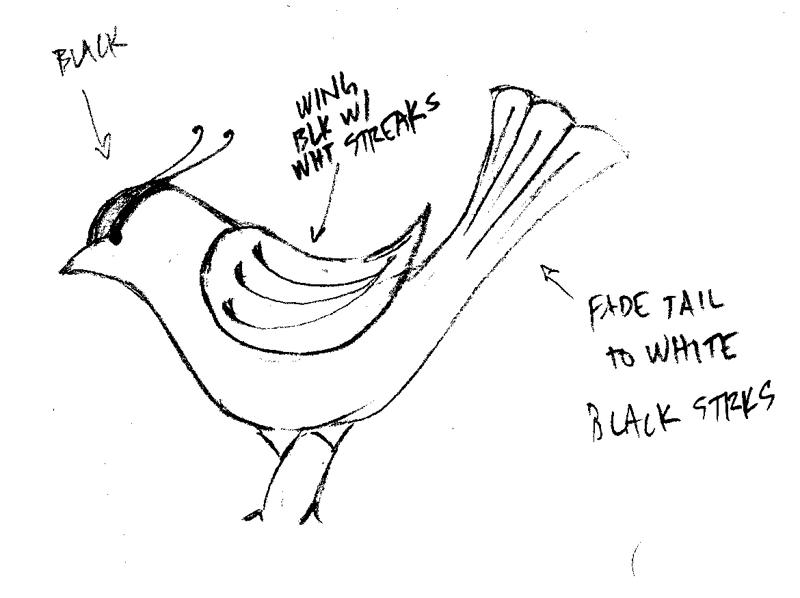 BLACK
WING
BLK W/
WHT STREAKS
FADE TAIL
to WHITE
BLACK STRKS